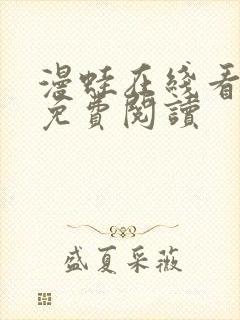 漫蛙在綫看
免費閱讀
盛夏采薇